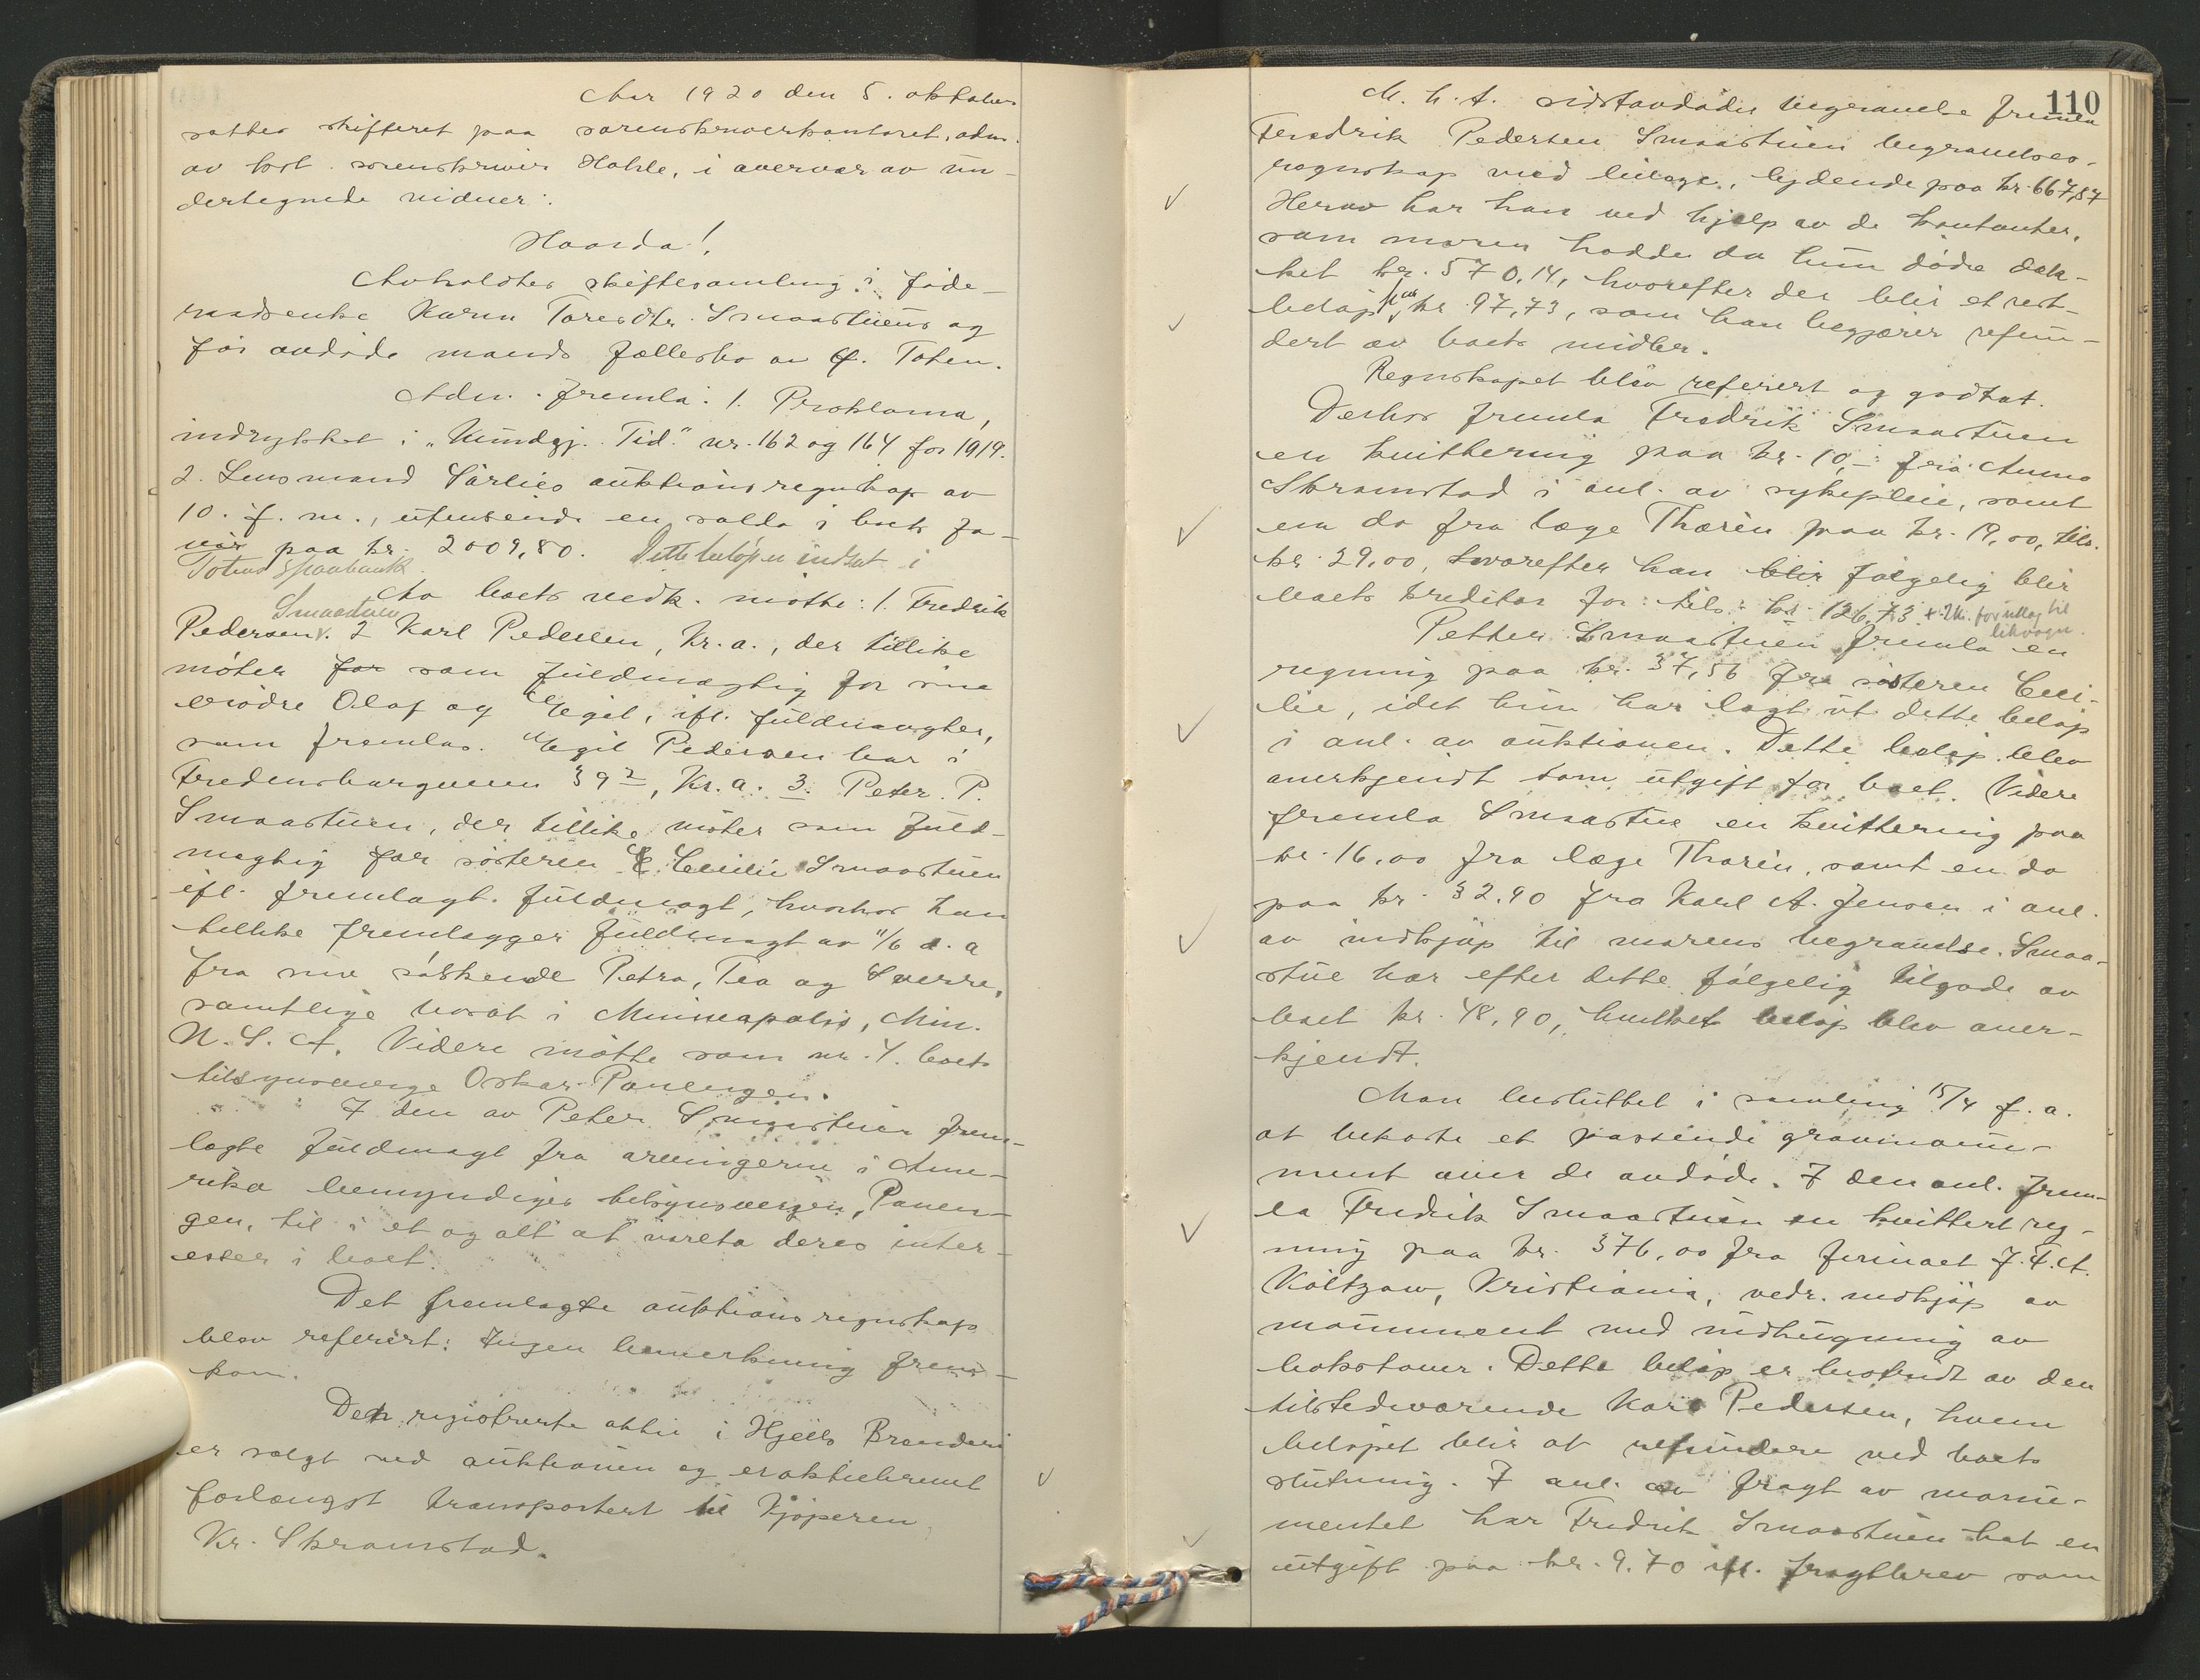 Aar 1920 den 5. oktober
sattes skifteret paa sorenskriverkontoret, adm.
av kst. sorenskriver Hohle, i overvær av un-
dertegnede vidner:
Hvorda!
Avholdtes skiftesamling i føde-
raadsenke Karen Toresdtr. Smaastuens og
før avdøde mands fællesbo av Ø. Toten.
Adm. fremla: 1. Proklama,
indrykket i "Kundgj. Tid." nr. 162 og 164 for 1919.
2. Lensmand Sørlies auktionsregnskap av
10. f. m., utvisende en saldo i boets fa-
vør paa kr. 2009,80. Dette beløp er indsat i
Totens Sparebank.
Av boets vedk. møtte: 1. Fredrik
Smaastuen
Pedersen. 2 Karl Pedersen, Kr.a., der tillike
møter for som fuldmægtig for sine
brødre Olaf og Egil, ifl. fuldmagter,
som fremlas. Egil Pedersen bor i
Fredensborgveien 39², Kr.a. 3. Peter P.
Smaastuen, der tillike møter som fuld-
mægtig for søsteren Cecilie Smaastuen
ifl. fremlagt fuldmagt, hvorhos han
tillike fremlægger fuldmagt av 11/6 d. a
fra sine søskende Petra, Tea og Sverre,
samtlige bosat i Minneapolis, Min.
U.S.A. Videre møtte som nr. 4. boets
tilsynsverge Oskar Paulengen.
I den av Peter Smaastuen frem-
lagte fuldmagt fra arvingerne i Ame-
rika bemyndiges tilsynsvergen, Paulen-
gen, til i et og alt at vareta deres inter-
esser i boet.
Det fremlagte auktionsregnskap
blev referert: Ingen bemerkning frem-
kom.
Den registrerte aktie i Hjells Brænderi
er solgt ved auktionen og er aktiebrevet
forlængst transportert til kjøperen
Kr. Skramstad.
110
M. h. t. sidstavdødes begravelse fremla
Fredrik Pedersen Smaastuen begravelses-
regnskap med bilage, lydende paa kr. 667,87
Herav har han ved hjelp av de kontanter,
som moren hadde da hun døde dæk-
ket kr. 570,14, hvorefter der blir et rest-
beløp stor kr. 97,73, som han begjærer refun-
dert av boets midler.
Regnskapet blev referert og godtat.
Derhos fremla Fredrik Smaastuen
en kvittering paa kr. 10,- fra Anna
Skramstad i anl. av sykepleie, samt
en do fra læge Thorén paa kr. 19,00, tils.
kr 29,00, hvorefter han blir følgelig blir
boets kreditor for: tils: kr 126,73 + 2 kr. for utlæg til
likvogn.
Petter Smaastuen fremla en
regning paa kr. 37,56 fra søsteren Ceci-
lie, idet hun har lagt ut dette beløp
i anl. av auktionen. Dette beløp blev
anerkjendt som utgift for boet. Videre
fremla Smaastue en kvittering paa
kr. 16,00 fra læge Thorén, samt en do
paa kr. 32,90 fra Karl A. Jensen i anl.
av indkjøp til morens begravelse. Smaa-
stue har efter dette følgelig tilgode av
boet kr. 48,90, hvilket beløp blev aner-
kjendt.
Man besluttet i samling 15/4 f. a.
at bekoste et passende gravmonu-
ment over de avdøde. I den anl. frem-
la Fredrik Smaastuen en kvittert reg-
ning paa kr. 376,00 fra firmaet
Køltzow, Kristiania, vedr. indkjøp av
monument med indhugning av
bokstaver. Dette beløp er bestridt av den
tilstedeværende Karl Pedersen, hvem
beløpet blir at refundere ved boets
slutning. I anl. av fragt av monu-
mentet har Fredrik Smaastuen hat en
utgift paa kr. 9.70 ifl. fragtbrev som